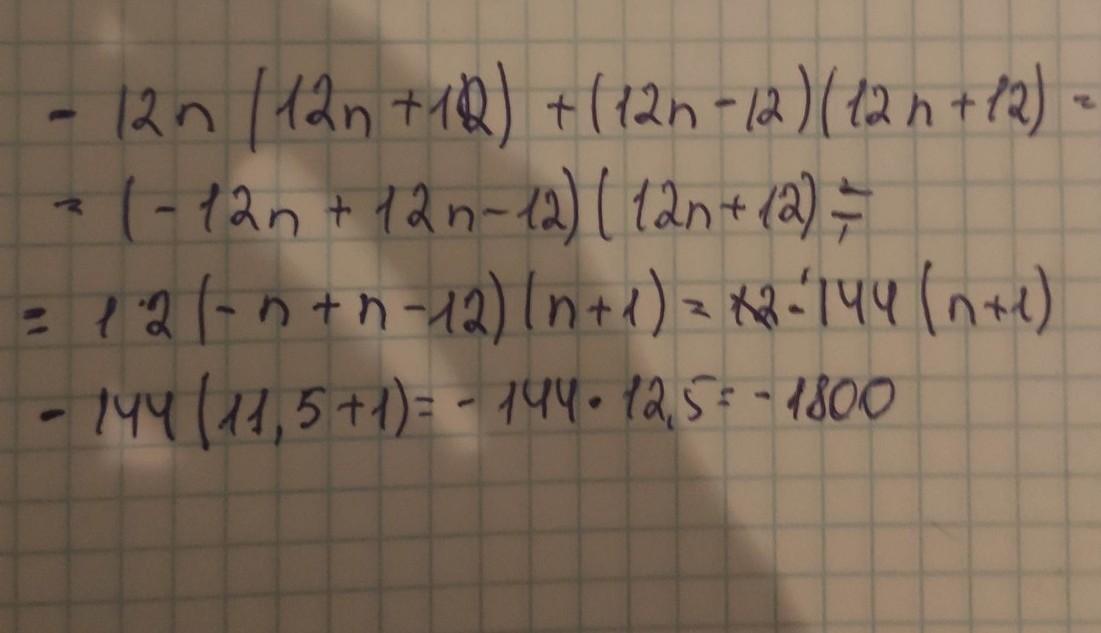 - 12n (12n + 12) + (12n - 12)(12n + 12) =
= (-12n + 12n - 12)(12n + 12) =
= 12(-n + n - 12)(n + 1) = -144(n+1)
- 144(11,5+1) = -144 · 12,5 = -1800